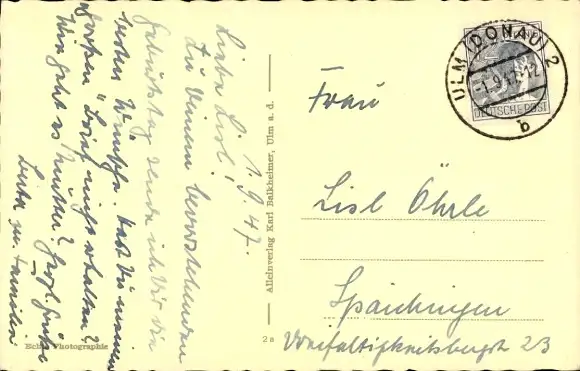 1.9.47.
Liebe Lisl!
Zu Deinem bevorstehenden
Geburtstag sende ich Dir die
besten Wünsche. Hast Du meinen
großen Brief nicht erhalten?
Wie geht es Mutter? Herzl. Grüße
Familie
Echte Photographie
2a
Alleinverlag Karl Balkheimer, Ulm a. d.
ULM (DONAU) 2
-1.9.47.-12
b
DEUTSCHE POST
Frau
Lisl Öhrle
Spaichingen
Dreifaltigkeitsbergstr 23